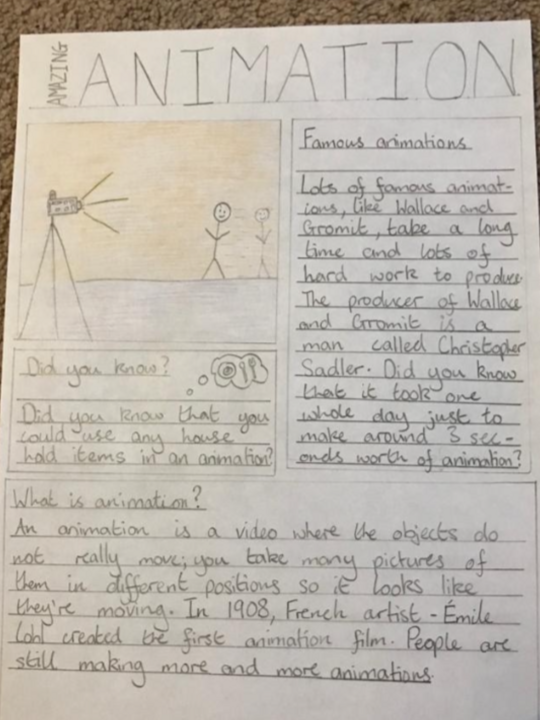 AMAZING
ANIMATION
Famous animations
Lots of famous animat-
ions, like Wallace and
Gromit, take a long
time and lots of
hard work to produce.
The producer of Wallace
and Gromit is a
man called Christopher
Sadler. Did you know
that it took one
whole day just to
make around 3 sec-
onds worth of animation?
Did you know?
Did you know that you
could use any house
hold items in an animation?
What is animation?
An animation is a video where the objects do
not really move; you take many pictures of
them in different positions so it looks like
they're moving. In 1908, French artist - Émile
Cohl created the first animation film. People are
still making more and more animations.